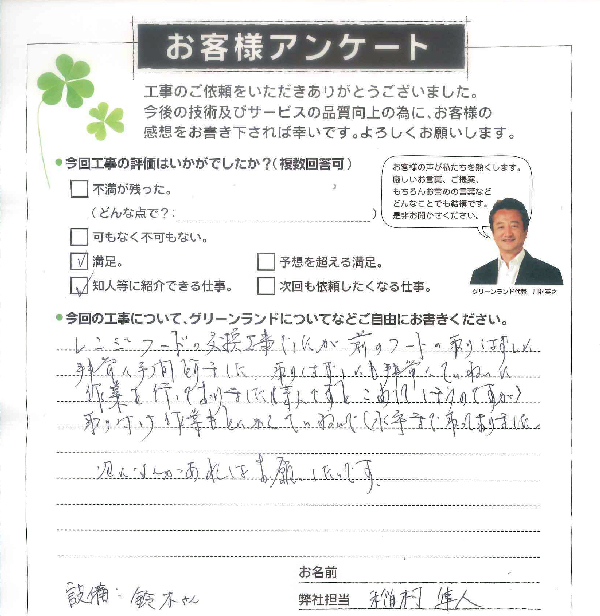 お客様アンケート
工事のご依頼をいただきありがとうございました。
今後の技術及びサービスの品質向上の為に、お客様の
感想をお書き下されば幸いです。よろしくお願いします。
●今回工事の評価はいかがでしたか？(複数回答可)
不満が残った。
(どんな点で？: )
可もなく不可もない。
満足。
予想を超える満足。
知人等に紹介できる仕事。
次回も依頼したくなる仕事。
お客様の声が私たちを熱くします。
厳しいお言葉、ご提案、
もちろんお誉めの言葉など
どんなことでも結構です。
是非お聞かせください。
グリーンランド代表
●今回の工事について、グリーンランドについてなどご自由にお書きください。
レンジフードの交換工事でしたが 前のフードの取りはずしに
非常に手間
作業を行って
取り付け作業も ていねいで(水平まで
次に お願いしたいです。
お名前
設備: 鈴木さん
弊社担当 稲村 隼人